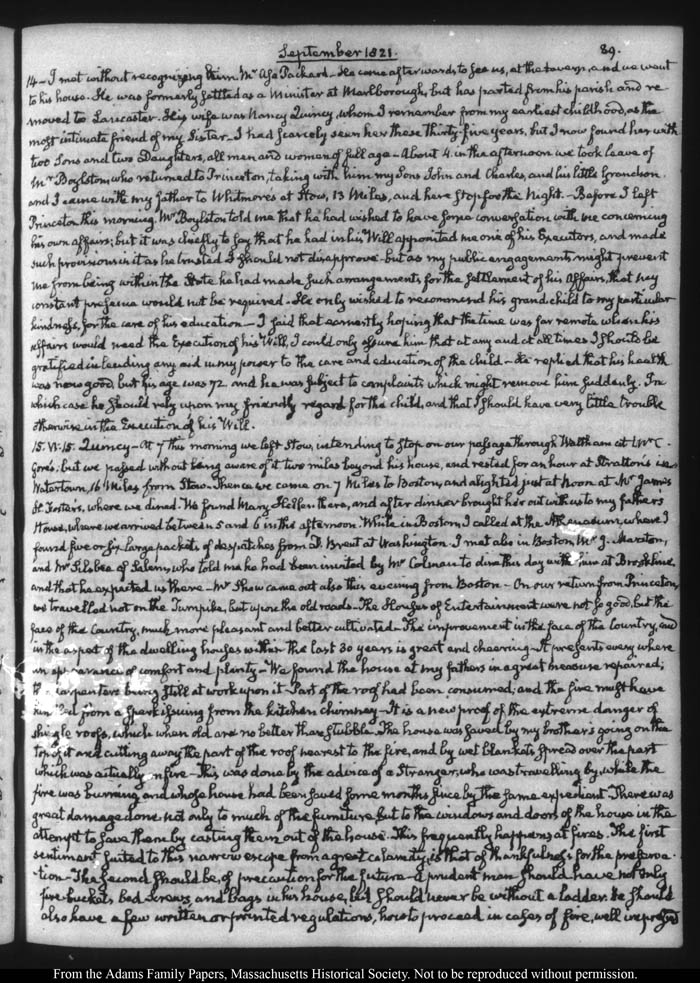 September 1821.
89.
14 — I met without recognizing him Mr. Asa Packard — He came afterwards to see us, at the tavern, and we went
to his house. He was formerly settled as a Minister at Marlborough, but has parted from his parish and re
moved to Lancaster. His wife was Nancy Quincy, whom I remember from my earliest childhood, as the
most intimate friend of my Sister. I had scarcely seen her these thirty-five years, but I now found her with
two Sons and two Daughters, all men and women of full age — About 4 in the afternoon we took leave of
Mr. Boylston, who returned to Princeton, taking with him my Sons John and Charles, and his little Grandson.
and I came with my father to Whitmore's at Stow, 13 Miles, and here stop for the Night. — Before I left
Princeton this morning Mr. Boylston told me that he had wished to have some conversation with me concerning
his own affairs; but it was chiefly to say that he had in his Will appointed me one of his Executors, and made
such provision in it as he trusted I should not disapprove — but as my public engagements might prevent
me from being within the State he had made such arrangements for the settlement of his affairs, that my
constant presence would not be required — He only wished to recommend his grand child to my particular
kindness, for the care of his education — I said that earnestly hoping that the time was far remote when his
affairs would need the Execution of his Will, I could only assure him that at any and at all times I should be
gratified in lending any aid in my power to the care and education of the child — He replied that his health
was now good, but his age was 72 and he was subject to complaints which might remove him suddenly. In
which case he should rely upon my friendly regard for the child, and that I should have very little trouble
otherwise in the Execution of his Will.
15. VI:15. Quincy — At 7 this morning we left Stow, intending to stop on our passage through Waltham at Mr. C.
Gore's, but we passed without being aware of it two miles beyond his house, and rested for an hour at Stratton's
Watertown, 16 Miles from Stow. Thence we came on 7 Miles to Boston, and alighted just at Noon at Mr. James
H. Foster's, where we dined. We found Mary Hellen there, and after dinner brought her out with us to my father's
House, where we arrived between 5 and 6 in the afternoon. While in Boston I called at the Athenaeum, where I
found five or six large packets of despatches from D. Brent at Washington. I met also in Boston Mr. J. Marston,
and Mr. Pilsbee of Salem, who told me he had been invited by Mr. Colman to dine this day with him at Brookline,
and that he expected us there — Mr. Shaw came out also this evening from Boston — On our return from Princeton,
we travelled not on the Turnpike, but upon the old roads — The Houses of Entertainment were not so good, but the
face of the Country, much more pleasant and better cultivated — The improvement in the face of the Country, and
in the aspect of the dwelling houses within the last 30 years is great and cheering — It presents every where
an appearance of comfort and plenty — We found the house at my father's in a great measure repaired;
the carpenters being still at work upon it — Part of the roof had been consumed; and the fire must have
kindled from a spark issuing from the kitchen chimney — It is a new proof of the extreme danger of
shingle roofs, which when old are no better than stubble. The house was saved by my brother's going on the
top of it and cutting away the part of the roof nearest to the fire, and by wet blankets spread over the part
which was actually on fire — This was done by the advice of a Stranger, who was travelling by, while the
fire was burning and whose house had been saved some months since by the same expedient. There was
great damage done not only to much of the furniture, but to the windows and doors of the house in the
attempt to save them by casting them out of the house. This frequently happens at fires. The first
sentiment suited to this narrow escape from a great calamity, is that of thankfulness for the preserva-
tion — The second should be, of precaution for the future — A prudent man should have not only
fire-buckets, bed screws, and bags in his house, but should never be without a ladder. He should
also have a few written or printed regulations, how to proceed in cases of fire, well
From the Adams Family Papers, Massachusetts Historical Society. Not to be reproduced without permission.